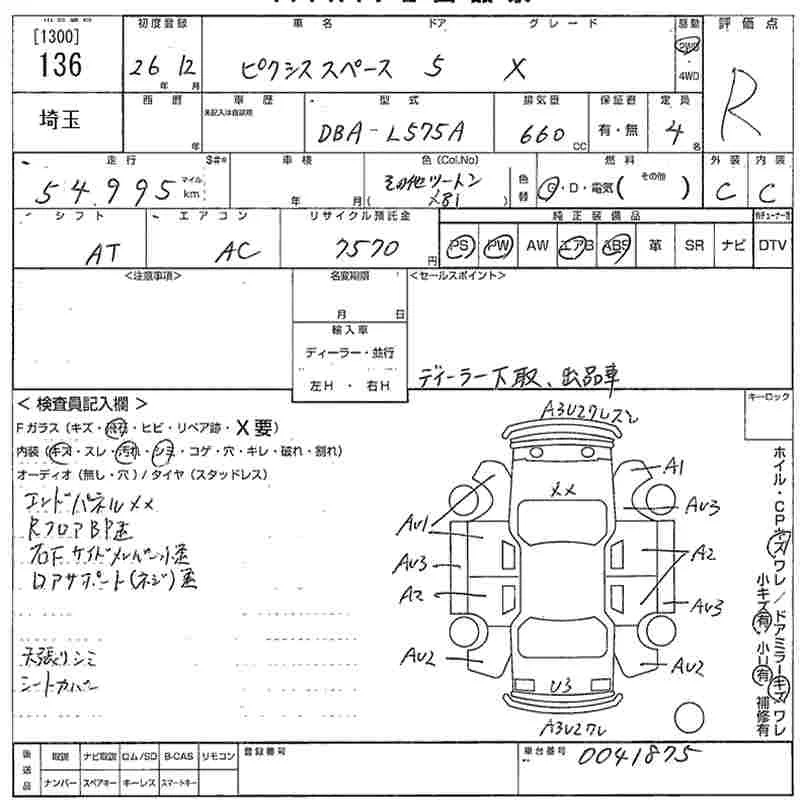 [1300]
136
初度登録
26年 12月
車名
ピクシススペース
ドア
5
グレード
X
駆動
2WD
4WD
評価点
R
埼玉
西暦
年
車歴
未記入は自家用
型式
DBA-L575A
排気量
660 CC
保証書
有・無
定員
4名
走行
54,995
マイル
km
S#*
車検
年 月
色(Col.No)
その他ツートン
( X81 )
色替
燃料
G・D・電気( その他 )
外装
C
内装
C
シフト
AT
エアコン
AC
リサイクル預託金
7570円
純正装備品
PS PW AW エアB ABS 革 SR ナビ DTV
<注意事項>
名変期限
月 日
輸入車
ディーラー・並行
左H ・ 右H
<セールスポイント>
ディーラー下取、出品車
< 検査員記入欄 >
Fガラス(キズ・飛石・ヒビ・リペア跡・X要)
内装(キズ・スレ・汚れ・シミ・コゲ・穴・キレ・破れ・割れ)
オーディオ(無し・穴)/タイヤ(スタッドレス)
エンドパネルXX
RフロアBP歪
右Fサイドメンバー小歪
ロアサポート(ネジ)歪
天張りシミ
シートカバー
キーロック
A3U2ワレスレ
A1
XX
AU3
AU1
AU3
A2
A2
AU3
AU2
AU2
U3
A3U2ワレ
ホイル・CPキズワレ/ドアミラーキズワレ
小キズ有、小U有 補修有
後送品
取説 ナビ取説 ロム/SD B-CAS リモコン
ナンバー スペアキー キーレス スマートキー
登録番号
車台番号
0041875